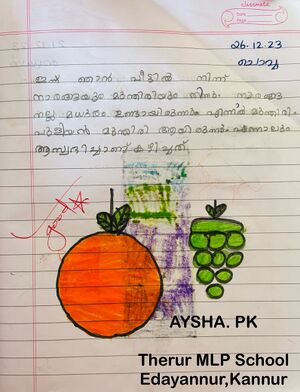 classmate
Date
Page
26.12.23
ചൊവ്വ
ഇന്ന് ഞാൻ വീട്ടിൽ നിന്ന്
നാരങ്ങയും മുന്തിരിയും തിന്നു. നാരങ്ങ
നല്ല മധുരം ഉണ്ടായിരുന്നു എന്നാൽ മുന്തിരി
പുളിയൻ മുന്തിരി ആയിരുന്നു എന്നാലും
ആസ്വദിച്ചാണ് കഴിച്ചത്.
good
AYSHA. PK
Therur MLP School
Edayannur,Kannur